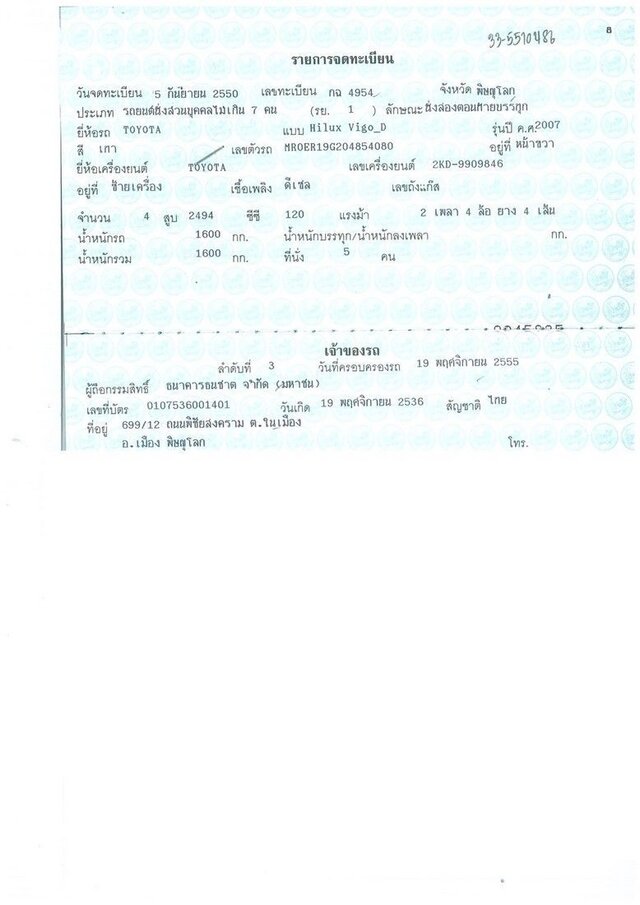 33-5510486
8
รายการจดทะเบียน
วันจดทะเบียน 5 กันยายน 2550 เลขทะเบียน กฉ 4954 จังหวัด พิษณุโลก
ประเภท รถยนต์นั่งส่วนบุคคลไม่เกิน 7 คน (รย. 1 ) ลักษณะ นั่งสองตอนท้ายบรรทุก
ยี่ห้อรถ TOYOTA แบบ Hilux Vigo_D รุ่นปี ค.ศ.2007
สี เทา เลขตัวรถ MROER19G204854080 อยู่ที่ หน้าขวา
ยี่ห้อเครื่องยนต์ TOYOTA เลขเครื่องยนต์ 2KD-9909846
อยู่ที่ ซ้ายเครื่อง เชื้อเพลิง ดีเซล เลขถังแก๊ส
จำนวน 4 สูบ 2494 ซีซี 120 แรงม้า 2 เพลา 4 ล้อ ยาง 4 เส้น
น้ำหนักรถ 1600 กก. น้ำหนักบรรทุก/น้ำหนักลงเพลา กก.
น้ำหนักรวม 1600 กก. ที่นั่ง 5 คน
เจ้าของรถ
ลำดับที่ 3 วันที่ครอบครองรถ 19 พฤศจิกายน 2555
ผู้ถือกรรมสิทธิ์ ธนาคารธนชาต จำกัด (มหาชน)
เลขที่บัตร 0107536001401 วันเกิด 19 พฤศจิกายน 2536 สัญชาติ ไทย
ที่อยู่ 699/12 ถนนพิชัยสงคราม ต.ในเมือง
อ.เมือง พิษณุโลก โทร.